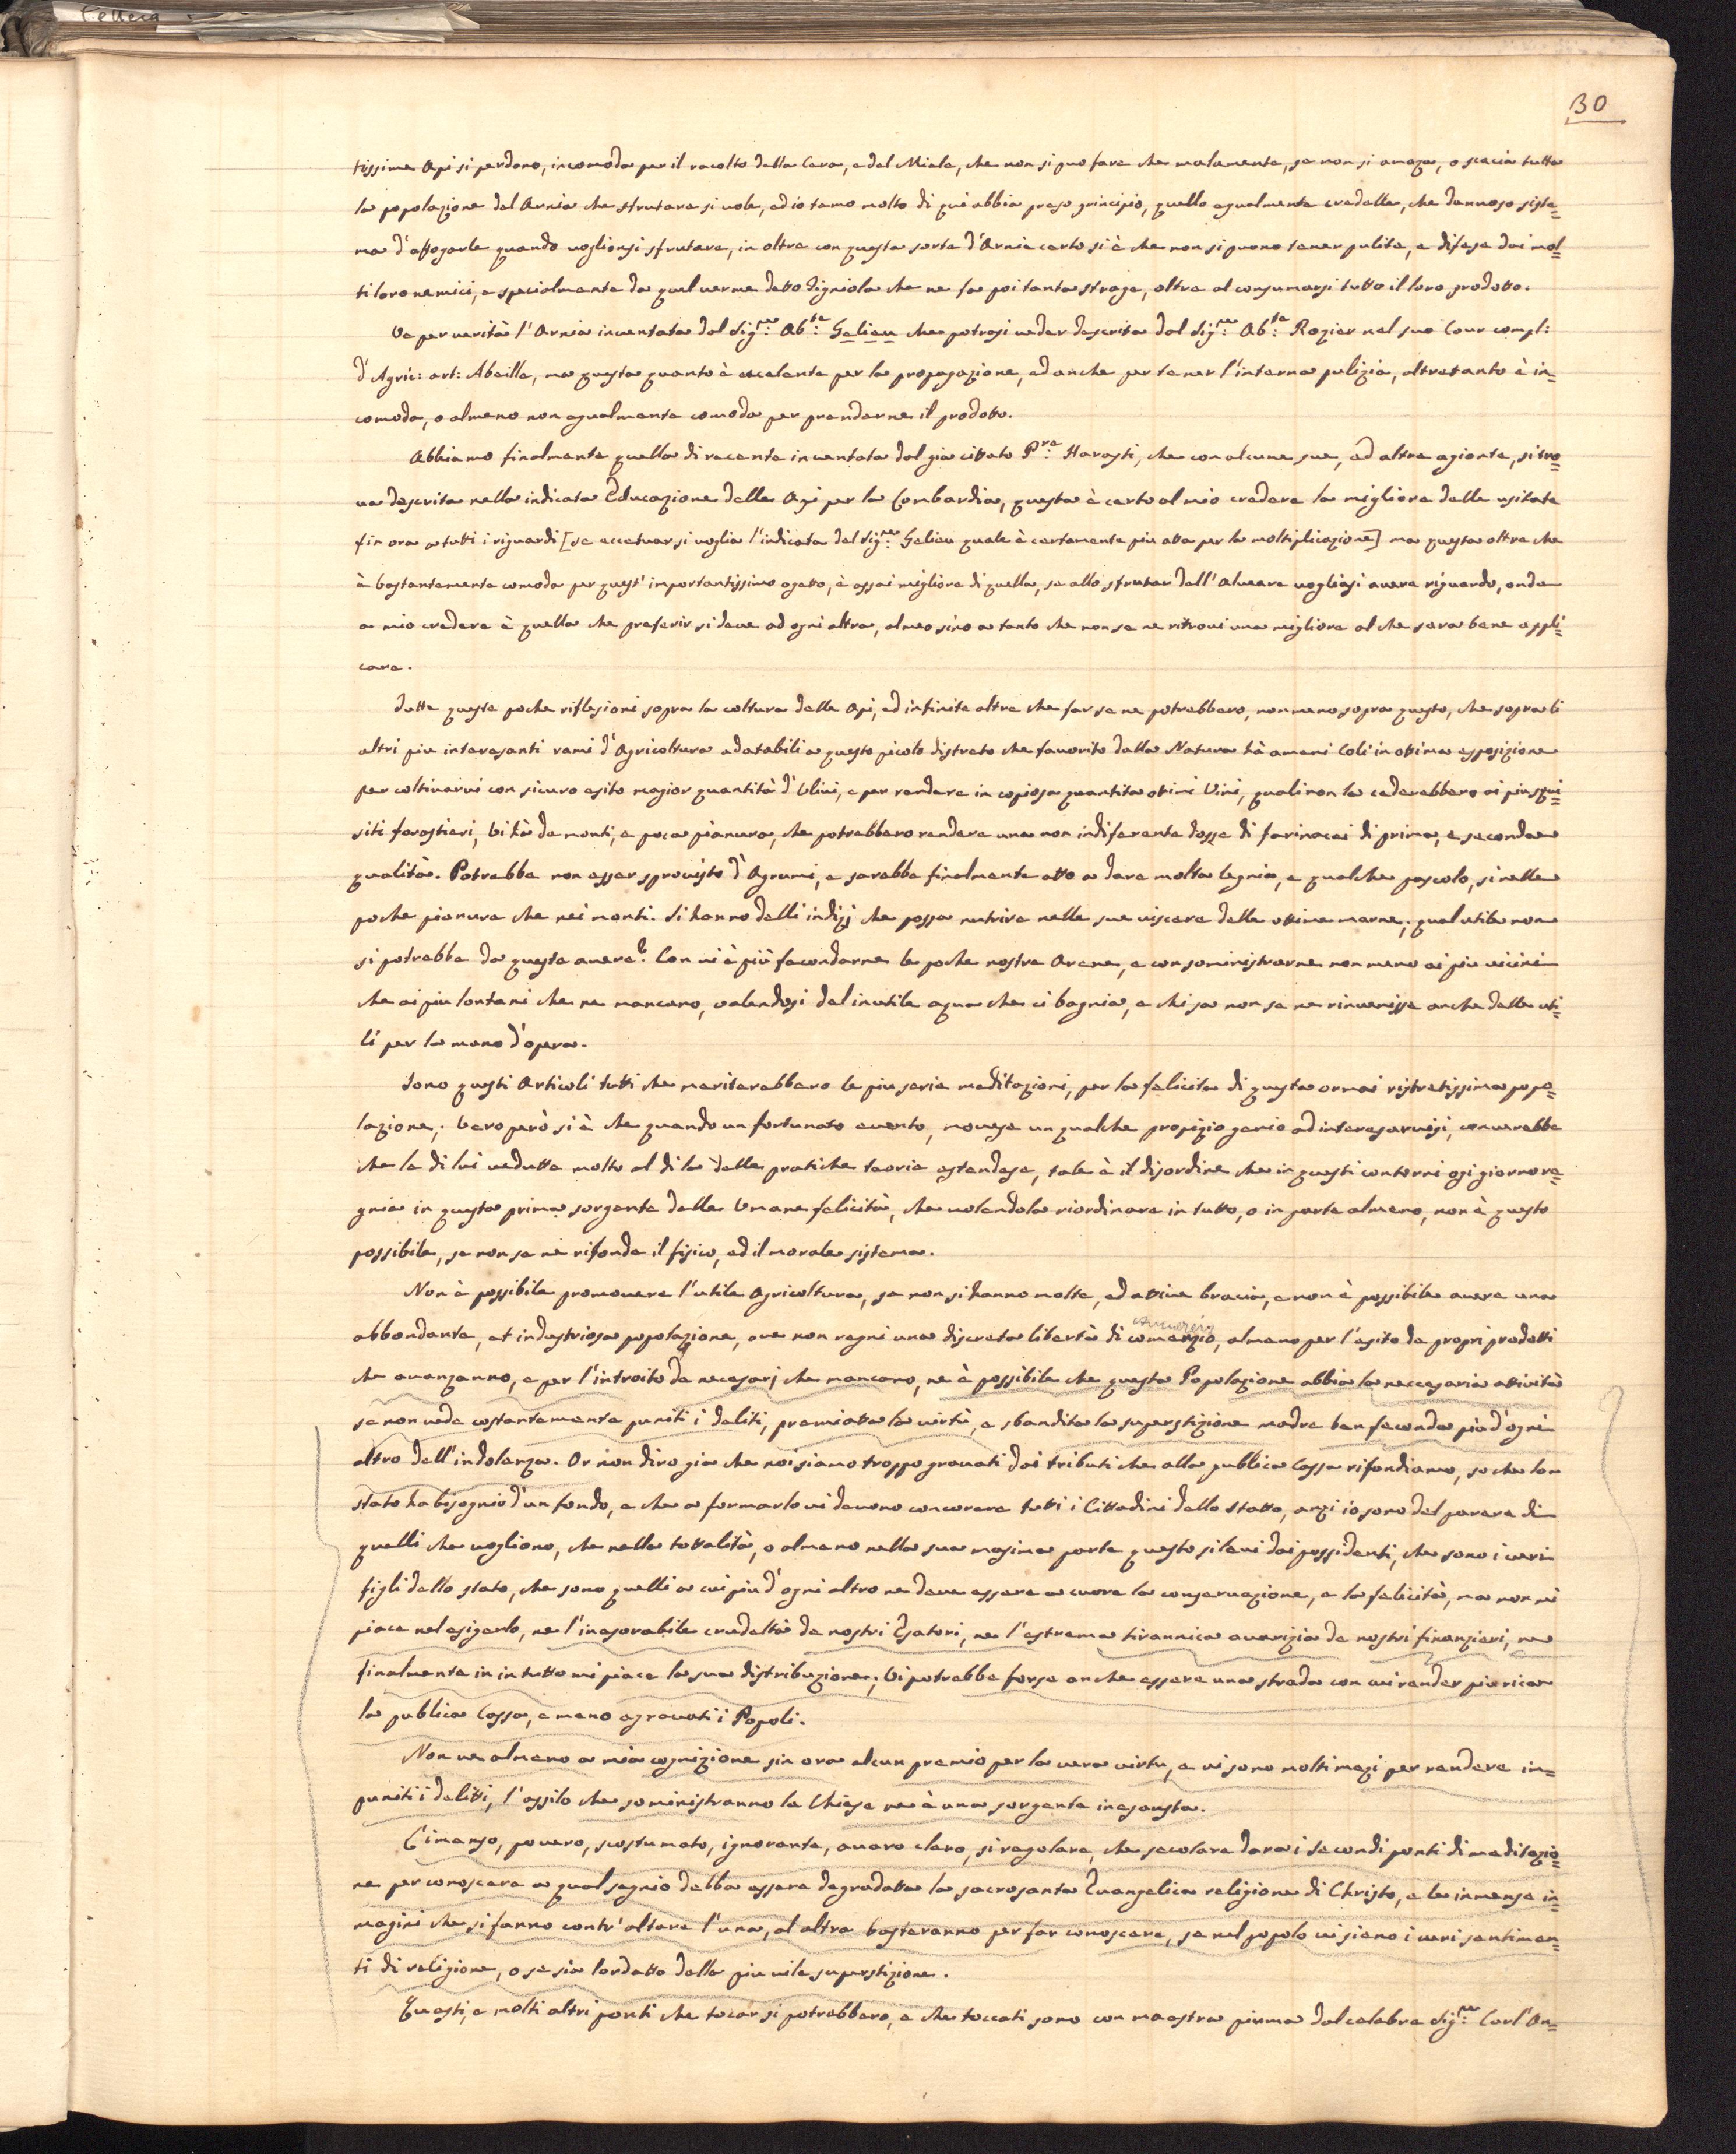 30
tissime Api si perdono, incomoda per il racolto della Cera, e del Miele, che non si puo fare che malamente, se non si amaza, o scacia tutta
la popolazione del Arnia che sfrutare si vole, ed io temo molto di qui abbia preso principio, quello egualmente crudelle, che dannoso siste=
ma d'affogarle quando voglionsi sfrutare, in oltre con questa sorte d'Arnie certo si è che non si puono tener pulite, e difese dai mol=
ti loro nemici, e specialmente da quel verme detto Tigniola che ne fa poi tanta strage, oltre al consumarsi tutto il loro prodotto.
Ve per verità l'Arnia inventata dal Sig:re Ab:te Gelieu che potrasi veder descrita dal Sig:re Ab:te Rozier nel suo Cour compl:
d'Agric: art: Abeille, ma questa quanto è eccelente per la propagazione, ed anche per tener l'interna pulizia, altretanto è in=
comoda, o almeno non egualmente comoda per prenderne il prodotto.
Abbiamo finalmente quella di recente inventata dal gia citato P:re Harasti, che con alcune sue, ed altre agionte, si tro=
va descrita nella indicata Educazione delle Api per la Lombardia, questa è certo al mio credere la migliore delle usitate
fin ora a tutti i riguardi [se eccetuar si voglia l'indicata del Sig:re Gelieu quale è certamente piu atta per la moltiplicazione] ma questa oltre che
è bastantemente comoda per quest'importantissimo ogetto, è assai migliore di quella, se allo sfrutar dell'Alveare vogliasi avere riguardo, onde
a mio credere è quella che preferir si deve ad ogni altra, almeo sino a tanto che non se ne ritrovi una migliore al che sara bene appli=
care.
Tutte queste poche riflesioni sopra la coltura delle Api, ed infinite altre che far se ne potrebbero, non meno sopra questo, che sopra li
altri piu interesanti rami d'Agricoltura adatabili a questo picolo distreto che favorito dalla Natura hà ameni Coli in otima esposizione
per coltivarvi con sicuro esito magior quantità d'Ulivi, e per rendere in copiosa quantita otimi Vini, quali non la cederebbero ai piu squi=
siti forastieri, Vi hà de monti, e poca pianura, che potrebbero rendere una non indiferente dosse di farinacei di prima, e seconda
qualità. Potrebbe non esser sprovisto d'Agrumi, e sarebbe finalmente atto a dare molta legnia, e qualche pascolo, si nelle
poche pianure che nei monti. Si hanno delli indizj che possa nutrire nelle sue viscere delle ottime marne; qual utile non
si potrebbe da queste avere? Con ciò è più fecondarne le poche nostre Arene, e con soministrarne non meno ai piu vicini
che ai piu lontani che ne mancano, valendosi del inutile aqua che ci bagnia, e chi sa non se ne rinvenisse anche delle uti=
li per la mano d'opera.
Sono questi Articoli tutti che meriterebbero le piu serie meditazioni, per la felicita di questa ormai ristretissima popo=
lazione; Vero però si è che quando un fortunato evento, movese un qualche propizio genio ad interesarvisi, converebbe
che le di lui vedutte molto al di la delle pratiche teorie estendese, tale è il disordine che in questi contorni ogi giorno re=
gnia in questa prima sorgente delle Umane felicità, che volendola riordinare in tutto, o in parte almeno, non è questo
possibile, se non se ne rifonda il fisico, ed il morale sistema.
Non è possibile promovere l'utile Agricoltura, se non si hanno molte, ed attive bracia, e non è possibile avere una
abbondante, et industriosa popolazione, ove non regni una discreta libertà di comerzio, almeno per l'esito de propri prodotti
che avanzanno, e per l'introito de necesarj che mancano, ne è possibile che questa Popolazione abbia la neccesaria attività
se non vede costantemente puniti i deliti, premiatta la virtù, e sbandita la superstizione madre ben feconda più d'ogni
altro dell'indolenza. Or non diro gia che noi siamo troppo gravati dai tributi che alla publica Cassa rifondiamo, so che lo
stato ha bisognio d'un fondo, e che a formarlo vi devono concorere tutti i Cittadini dello statto, anzi io sono del parere di
quelli che vogliono, che nella tottalità, o almeno nella sua masima parte questo si levi dai possidenti, che sono i veri
figli dello stato, che sono quelli a cui piu d'ogni altro ne deve essere a cuore la conservazione, e la felicità, ma non mi
piace nel esigerlo, ne l'inesorabile crudeltà de nostri Esatori, ne l'estrema tirannica avarizia de nostri finanzieri, ne
finalmente in in tutto mi piace la sua distribuzione; Vi potrebbe forse anche essere una strada con cui render piu rica
la publica Cassa, e meno agravati i Popoli.
Non ve almeno a mia cognizione sin ora alcun premio per la vera virtu, e vi sono molti mezi per rendere im=
puniti i delitti, l'assilo che soministranno le Chiese ne è una sorgente inesausta.
L'imenso, povero, scostumato, ignorante, avaro clero, si regolare, che secolare dara i secondi ponti di meditazio=
ne per conoscere a qual segnio debba essere degradatta la sacrosanta Evangelica religione di Christo, e le inmense in=
magini che si fanno contr'altare l'una, al altra basteranno per far conoscere, se nel popolo vi siano i veri sentimen=
ti di religione, o se sia lordatto della piu vile superstizione.
Questi, e molti altri ponti che tocar si potrebbero, e che toccati sono con maestra piuma dal celebre Sig:re Carl'An=